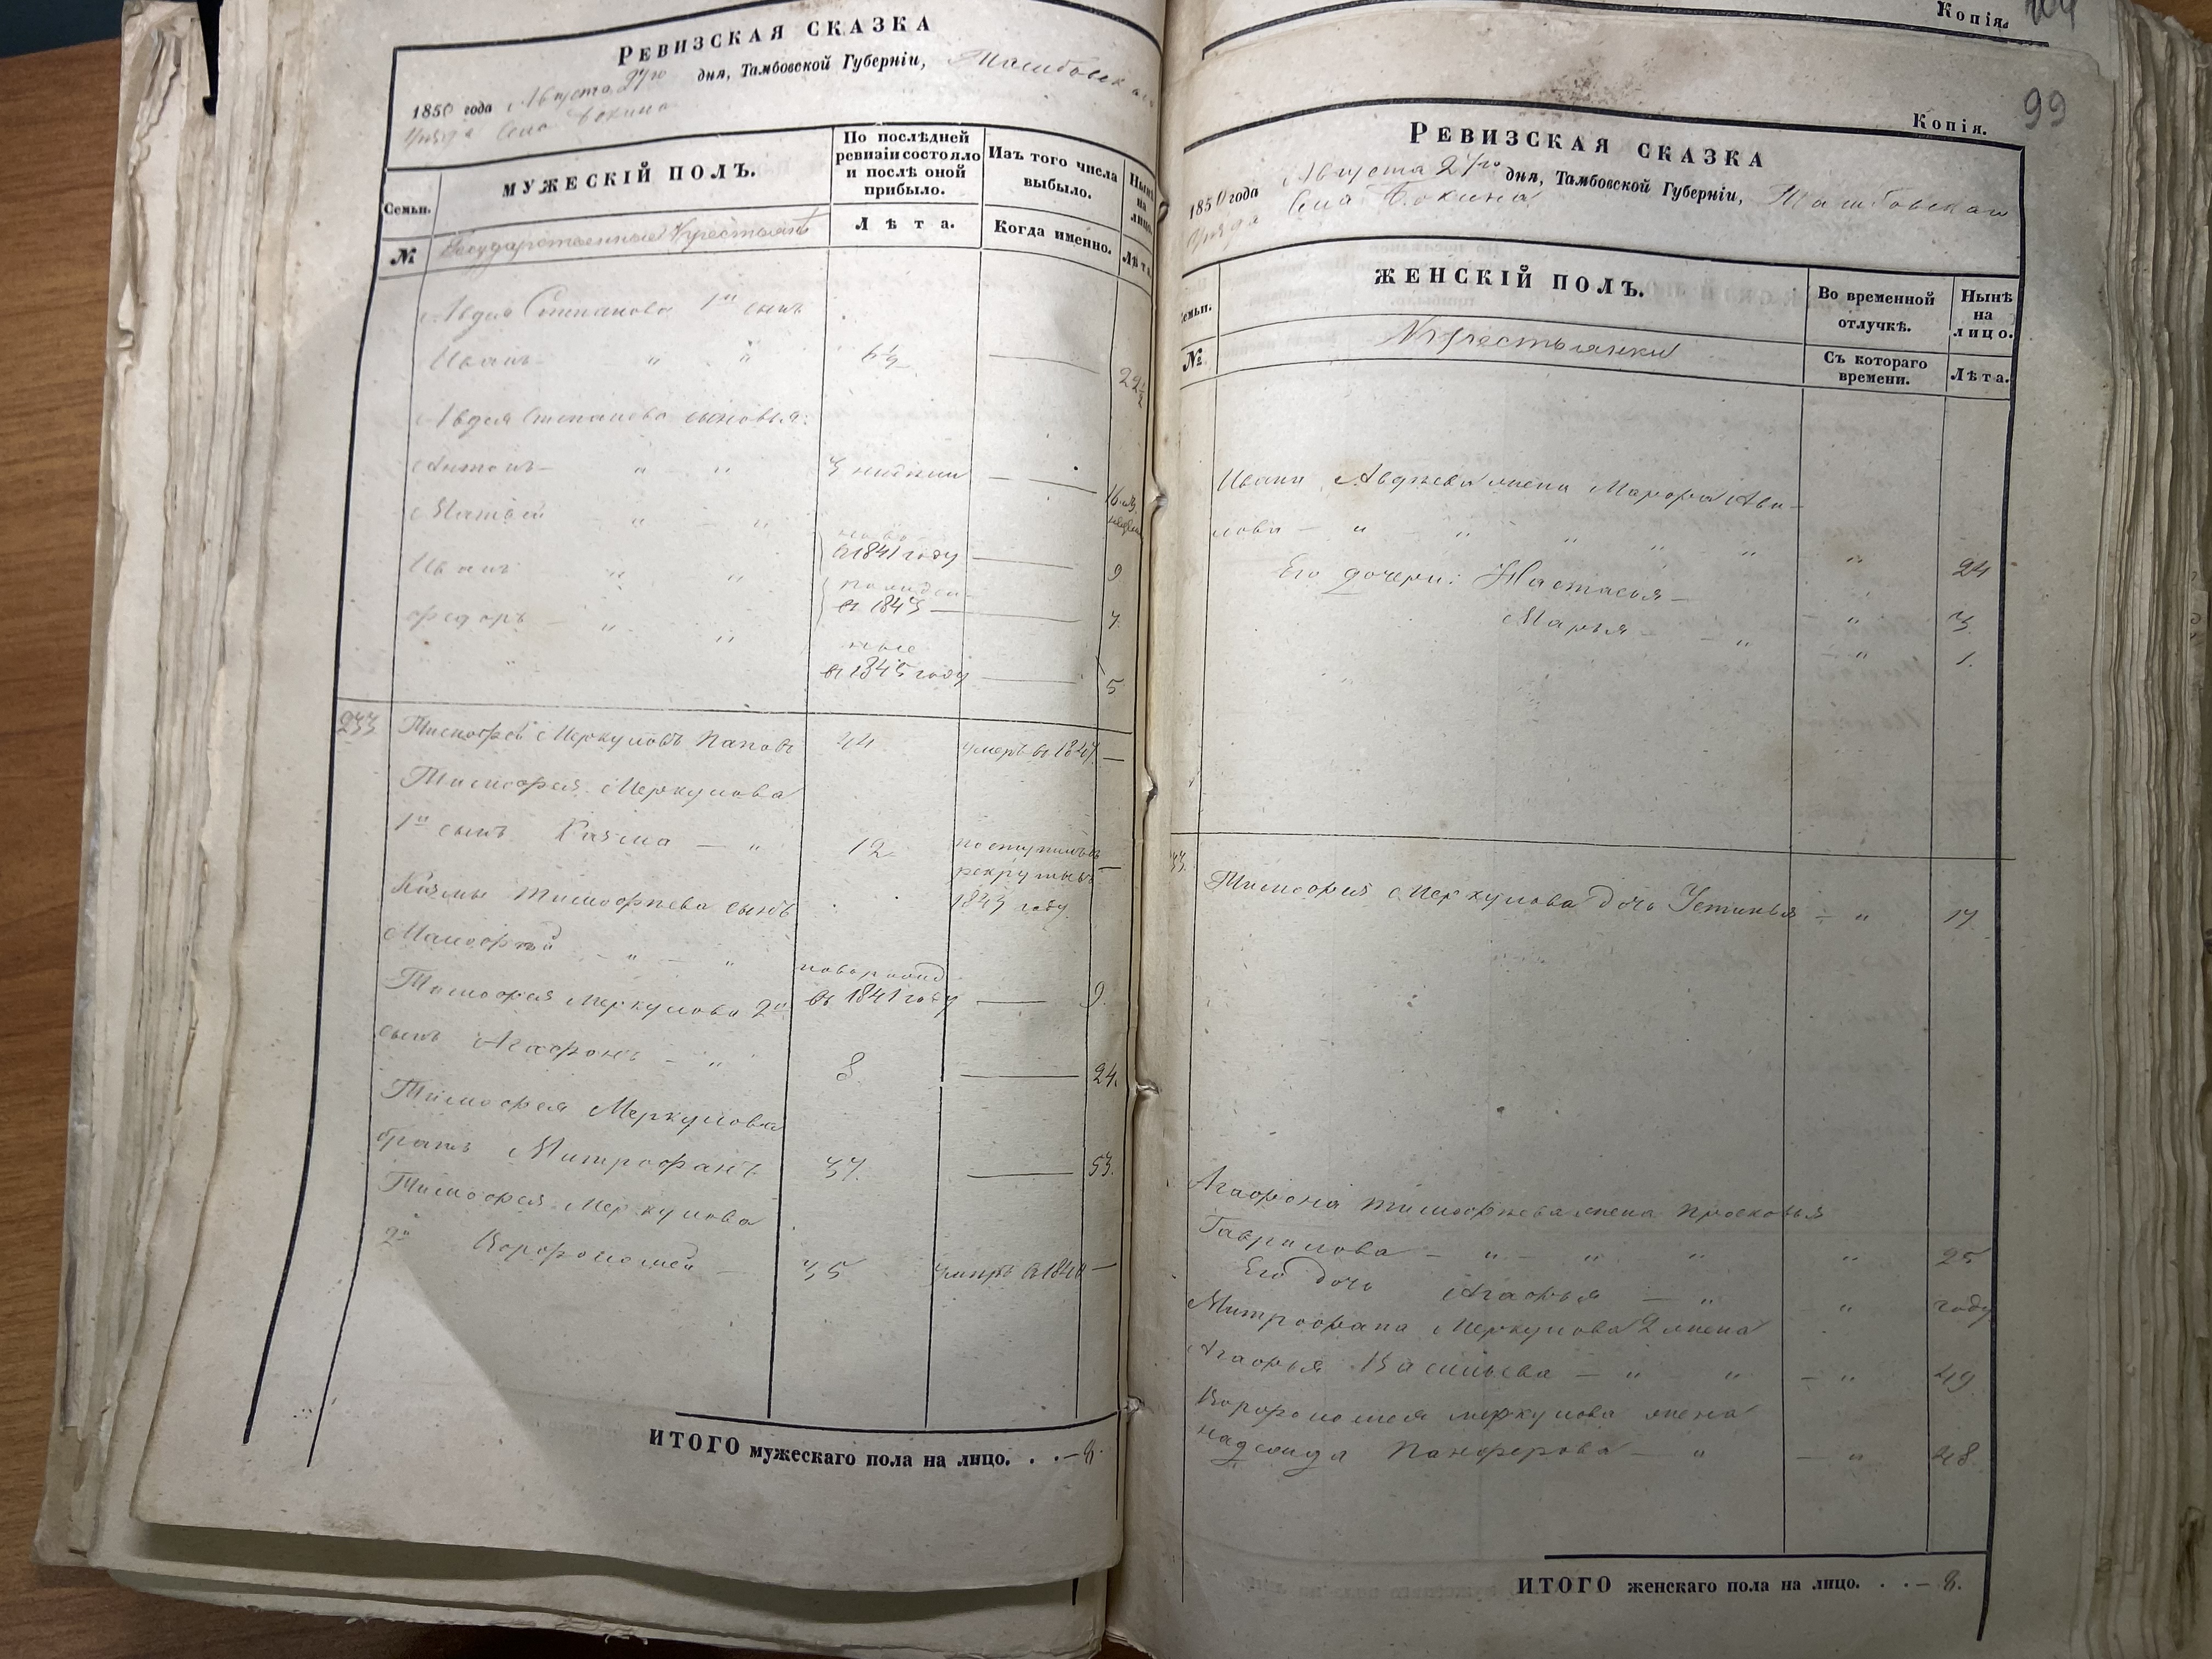 Ревизская сказка
1850 года Августа 27го дня, Тамбовской Губерніи, Тамбовскаго
Уѣзда Села Бокина
Семьи.
МУЖЕСКІЙ ПОЛЪ.
По послѣдней ревизіи состояло и послѣ оной прибыло.
Изъ того числа выбыло.
Нынѣ на лицо.
№
Государственные Крестьяне
Лѣта.
Когда именно.
Лѣта.
Авдея Степанова 1й сынъ
Иванъ " " 6½ — 22½
Авдея Степанова сыновья:
Антонъ — " — " 3 недѣли — 16 л. 3 недѣли
Матвей — " — " въ 1841 году — 9
Иванъ " " въ 1843 — 7.
Федоръ — " "
въ 1845 году — 5
233 Тимофей Меркуловъ Паповъ 44 умеръ въ 1847 —
Тимофея Меркулова
1й сынъ Казма — " 12 поступилъ въ
рекруты въ —
Казмы Тимофѣева сынъ 1843 году
Тимофея Меркулова 2й въ 1841 году — 9.
сынъ Агафонъ — " 8. — 24.
Тимофея Меркулова
братъ Митрофанъ 37. — 53.
Тимофея Меркулова
2й Ворфоломей — 35 умеръ въ 1840 —
ИТОГО мужескаго пола на лицо. . . — 8.
Копія.
99
Копія.
Ревизская сказка
1850 года Августа 27го дня, Тамбовской Губерніи, Тамбовскаго
Уѣзда Села Бокина
Семьи.
ЖЕНСКІЙ ПОЛЪ.
Во временной отлучкѣ.
Нынѣ на лицо.
№
Крестьянки
Съ котораго времени.
Лѣта.
Ивана Авдѣева жена Марфа
" — " " " " " " 24
Его дочери: Настасья — " 3.
Марья — — " — " 1.
33. Тимофея Меркулова дочь Устинья — " 17
Агафона Тимофѣева жена Просковья
Гаврилова — " — " " " 25
Его дочь Агафья — " " году
Митрофана Меркулова 2 жена
Агафья Васильева — " " — " 49
Ворфоломея Меркулова жена
Надежда Панферова — " — " 48.
ИТОГО женскаго пола на лицо. . . — 8.